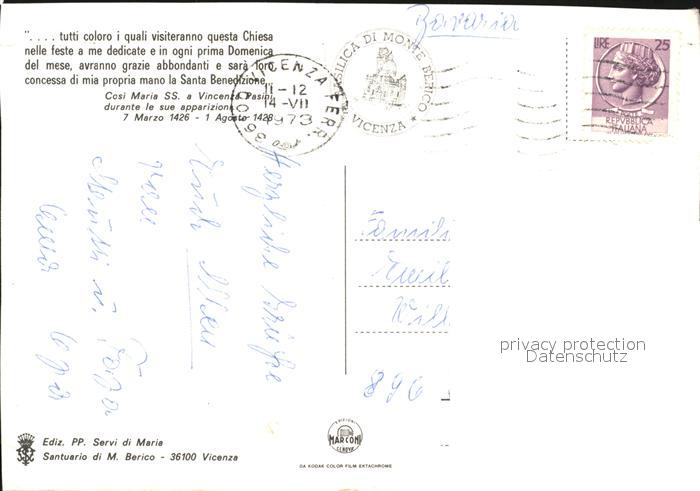 Bavaria
". . . . tutti coloro i quali visiteranno questa Chiesa
nelle feste a me dedicate e in ogni prima Domenica
del mese, avranno grazie abbondanti e sarà loro
concessa di mia propria mano la Santa Benedizione.
Così Maria SS. a Vincenza Pasini
durante le sue apparizioni
7 Marzo 1426 - 1 Agosto 1428
36100 VICENZA FERR.
11-12
14-VII
1973
BASILICA DI MONTE BERICO
VICENZA
LIRE 25
REPVBBLICA
ITALIANA
Herzliche Grüße
Euch Allen
von
Mutti u. Papa
und
Famili
Emil
Will
896
privacy protection
Datenschutz
Ediz. PP. Servi di Maria
Santuario di M. Berico - 36100 Vicenza
EDIZIONI
MARCONI
GENOVA
DA KODAK COLOR FILM EKTACHROME